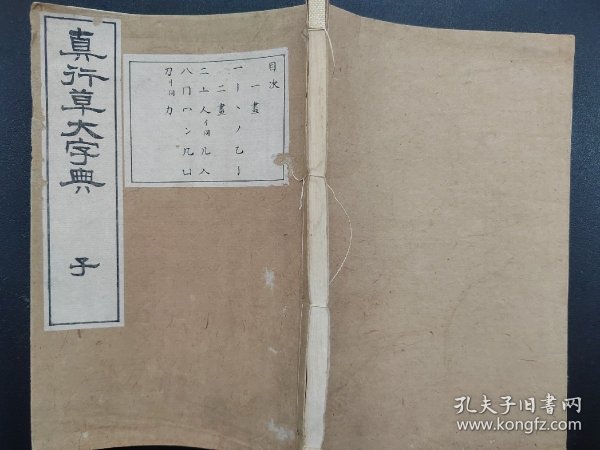 真行草大字典
子
目次
一畫
一丨丶丿乙亅
二畫
二亠人亻同儿入
八冂冖冫几凵
刀刂同力
孔夫子旧书网
www.kongfz.com